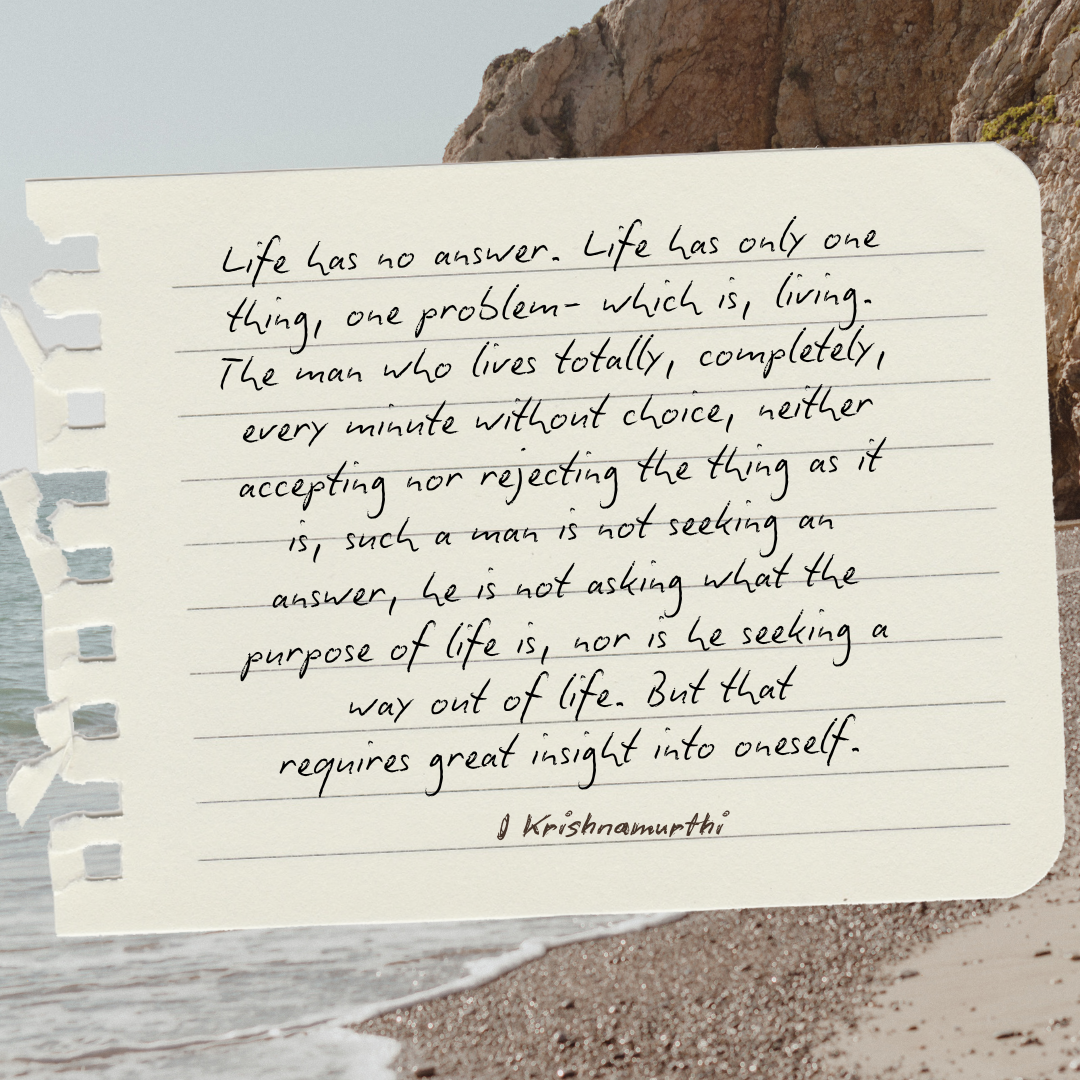 Life has no answer. Life has only one
thing, one problem- which is, living.
The man who lives totally, completely,
every minute without choice, neither
accepting nor rejecting the thing as it
is, such a man is not seeking an
answer, he is not asking what the
purpose of life is, nor is he seeking a
way out of life. But that
requires great insight into oneself.
J Krishnamurthi